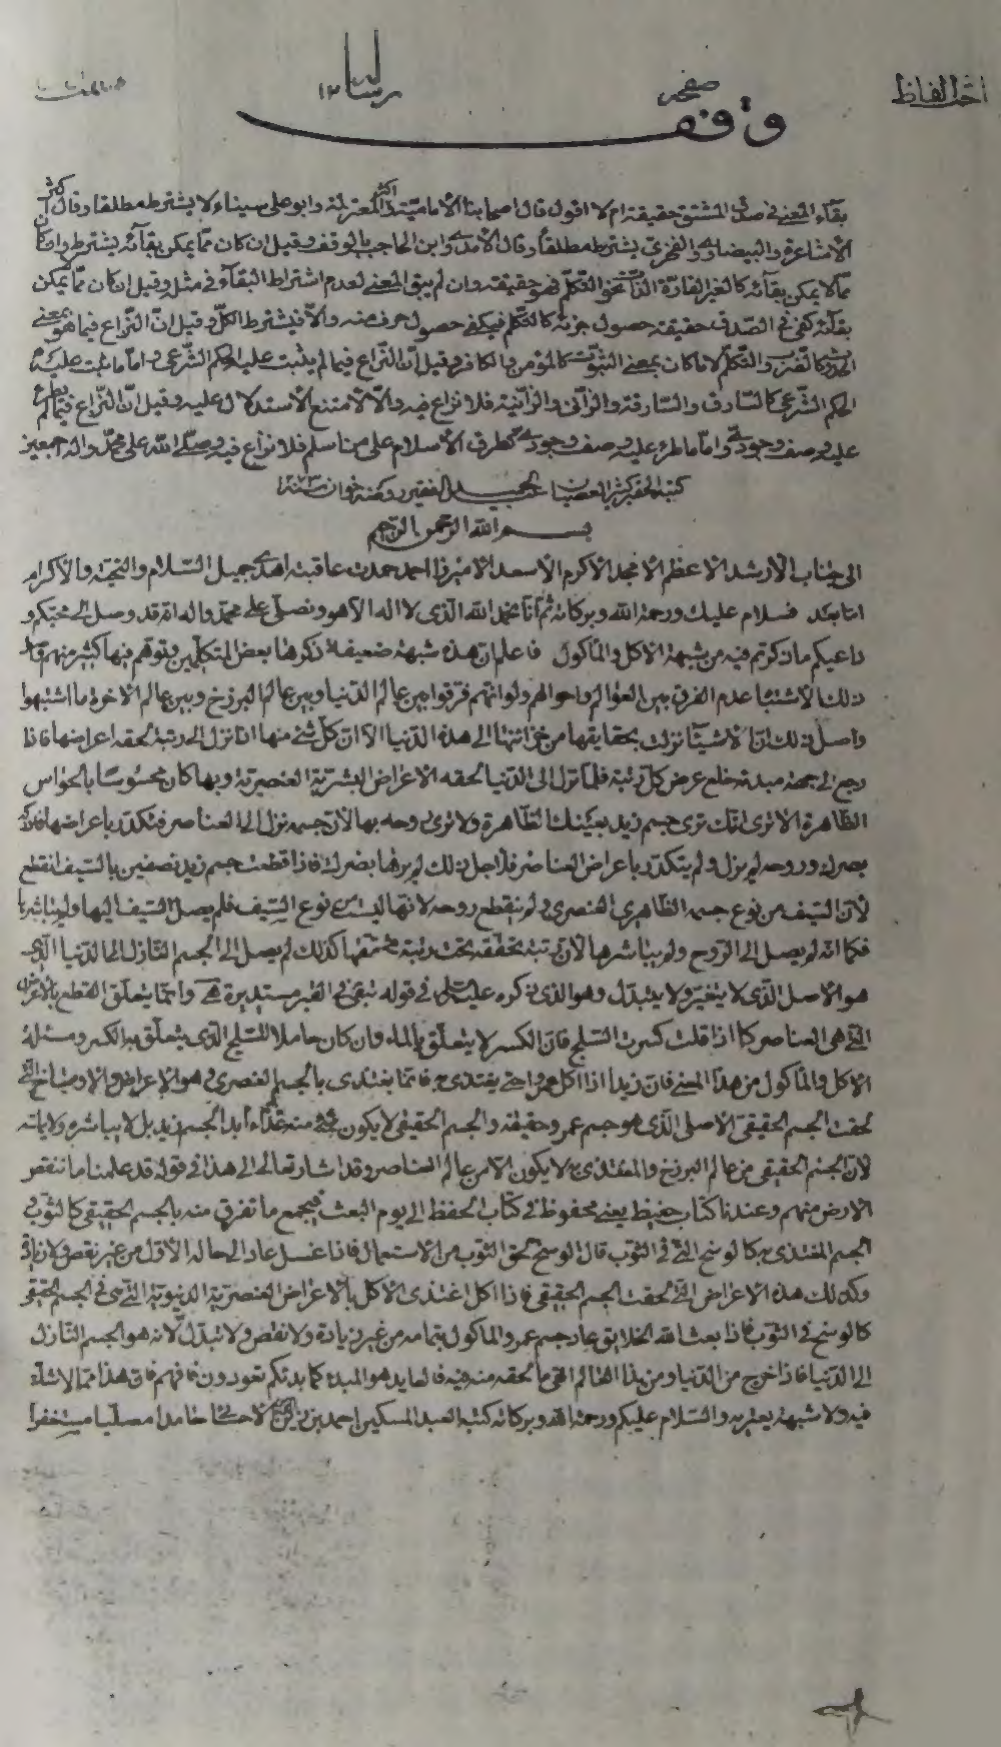 صفحه رسالة ١٢
وقف
بقاء المعنى في صدق المشتق حقيقة ام لا اقول قال اصحابنا الامامية واكثر المعتزلة وابو على سيناء لا يشترط مطلقا وقال اكثر
الاشاعرة والبيضاوى والفخرى يشترط مطلقا وقال الامدى وابن الحاجب بالوقف وقيل ان كان مما يمكن بقائه يشترط وان كان
مما لا يمكن بقائه كالغير القارة الذات نحو التكلم فهو حقيقة وان لم يبق المعنى لعدم اشتراط البقاء في مثله وقيل ان كان مما يمكن
بقائه كفى في الصدق حقيقة حصول جزئه كالتكلم فيكفى حصول حرف منه والا فيشترط الكل وقيل ان النزاع فيما هو بمعنى
الحدوث كالضرب والتكلم لا ما كان بمعنى الثبوت كالمؤمن والكافر وقيل ان النزاع فيما لم يثبت عليه الحكم الشرعى واما ما ثبت عليه
الحكم الشرعى كالسارق والسارقة والزانى والزانية فلا نزاع فيه والا لامتنع الاستدلال عليه وقيل ان النزاع فيما لم يطرء
عليه وصف وجودى واما ما طرء عليه وصف وجودى كطرق الاسلام على من اسلم فلا نزاع فيه وصلى الله على محمد واله اجمعين
كتبه الحقير كثير العصيان
بسم الله الرحمن الرحيم
الى جناب الارشد الاعظم الامجد الاكرم الاسعد الاميرزا احمد حمدت عاقبته اهدى جميل السلام والتحية والاكرام
اما بعد فسلام عليك ورحمة الله وبركاته ثم انا نحمد الله الذى لا اله الا هو ونصلى على محمد واله انه قد وصل الى محبكم و
داعيكم ما ذكرتم فيه من شبهة الاكل والماكول فاعلم ان هذه شبهة ضعيفة ذكرها بعض المتكلمين وتوهم فيها كثير منهم
ذلك الاشتباه عدم الفرق بين العوالم واحوالهم ولو انهم فرقوا بين عالم الدنيا وبين عالم البرزخ وبين عالم الاخرة ما اشتبهوا
واصل ذلك ان الاشياء نزلت بحقايقها من خزائنها الى هذه الدنيا الا ان كل شئ منها اذا نزل الى رتبة لحقه اعراضها فاذا
رجع الى جهة مبدئه خلع عرض كل رتبة فلما نزل الى الدنيا لحقه الاعراض البشرية العنصرية وبها كان محسوسا بالحواس
الظاهرة الا ترى انك ترى جسم زيد بعينك الظاهرة ولا ترى روحه بها لان جسمه نزل الى العناصر فتكدر باعراضها فادركه
بصرك وروحه لم ينزل ولم يتكدر باعراض العناصر فلاجل ذلك لم يرها بصرك فاذا قطعت جسم زيد نصفين بالسيف انقطع
لان السيف من نوع جسمه الظاهرى العنصرى ولم ينقطع روحه لانها ليست من نوع السيف فلم يصل السيف اليها ولم يباشرها
فكما انه لم يصل الى الروح ولم يباشرها لان رتبة تحققه تحت رتبة تحققها كذلك لم يصل الى الجسم النازل الى الدنيا الذى
هو الاصل الذى لا يتغير ولا يتبدل وهو الذى ذكره عليه السلام في قوله تبقى في القبر مستديرة وانما يتعلق القطع بالاعراض
التى هى العناصر كما اذا قلت كسرت الثلج فان الكسر لا يتعلق بالماء وان كان حاملا للثلج الذى يتعلق به الكسر ومسئلة
الاكل والماكول من هذا المعنى فان زيدا اذا اكل عمروا حتى يغتذى به فانما يغتذى بالجسم العنصرى وهو الاعراض والاوساخ التى
لحقت الجسم الحقيقى الاصلى الذى هو جسم عمرو حقيقة والجسم الحقيقى لا يكون شئ منه غذاء ابدا لجسم زيد بل لا يباشره ولا ياته
لان الجسم الحقيقى من عالم البرزخ والمغتذى به لا يكون الا من عالم العناصر وقد اشار تعالى الى هذا في قوله قد علمنا ما تنقص
الارض منهم وعندنا كتاب حفيظ يعنى محفوظ في كتاب الحفظ الى يوم البعث فيجمع ما تفرق منه بالجسم الحقيقى كالثوب في
الجسم المغتذى به كالوسخ الذى في الثوب فان الوسخ لحق الثوب من الاستعمال فاذا غسل عاد الى حاله الاول من غير نقص ولا زيادة
وكذلك هذه الاعراض التى لحقت الجسم الحقيقى فاذا اكل اغتذى الاكل بالاعراض العنصرية الدنيوية التى هى في الجسم الحقيقى
كالوسخ في الثوب فاذا بعث الله الخلايق عاد جسم عمرو الماكول بتمامه من غير زيادة ولا نقص ولا تبدل لانه هو الجسم النازل
الى الدنيا فاذا خرج من الدنيا ومن هذا العالم القى ما لحقه منه فيه فالعايد هو المبدء كما بدئكم تعودون فافهم فان هذا مما لا شك
فيه ولا شبهة يعتريه والسلام عليكم ورحمة الله وبركاته كتبه العبد المسكين احمد بن زين الدين الاحسائى حامدا مصليا مستغفرا